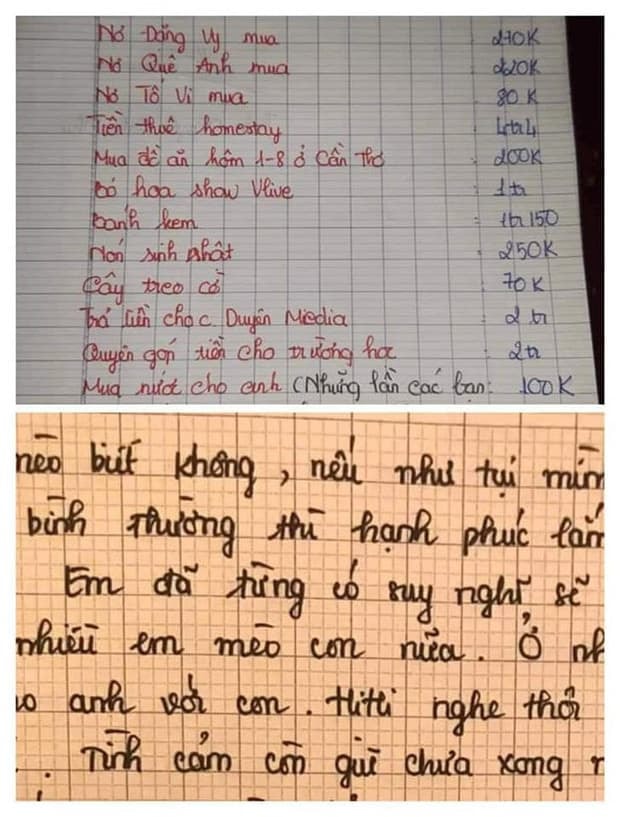 Nơ Đặng Vy mua : 270K
Nơ Quế Anh mua : 220K
Nơ Tố Vi mua : 80K
Tiền thuê homestay : 4tr4
Mua đồ ăn hôm 1-8 ở Cần Thơ : 200K
bó hoa show Vlive : 1tr
bánh kem : 1tr150
Nón sinh nhật : 250K
Cây treo cờ : 70K
Trả tiền cho c Duyên Media : 2 tr
Quyên góp tiền cho trường học : 2tr
Mua nước cho anh (Những lần các bạn: 100K
mèo biết không, nếu như tụi mìn
bình thường thì hạnh phúc lắm
Em đã từng có suy nghĩ sẽ
nhiều em mèo con nữa. Ở nh
anh với con. Hihi nghe thôi
. Tình cảm còn gửi chưa xong